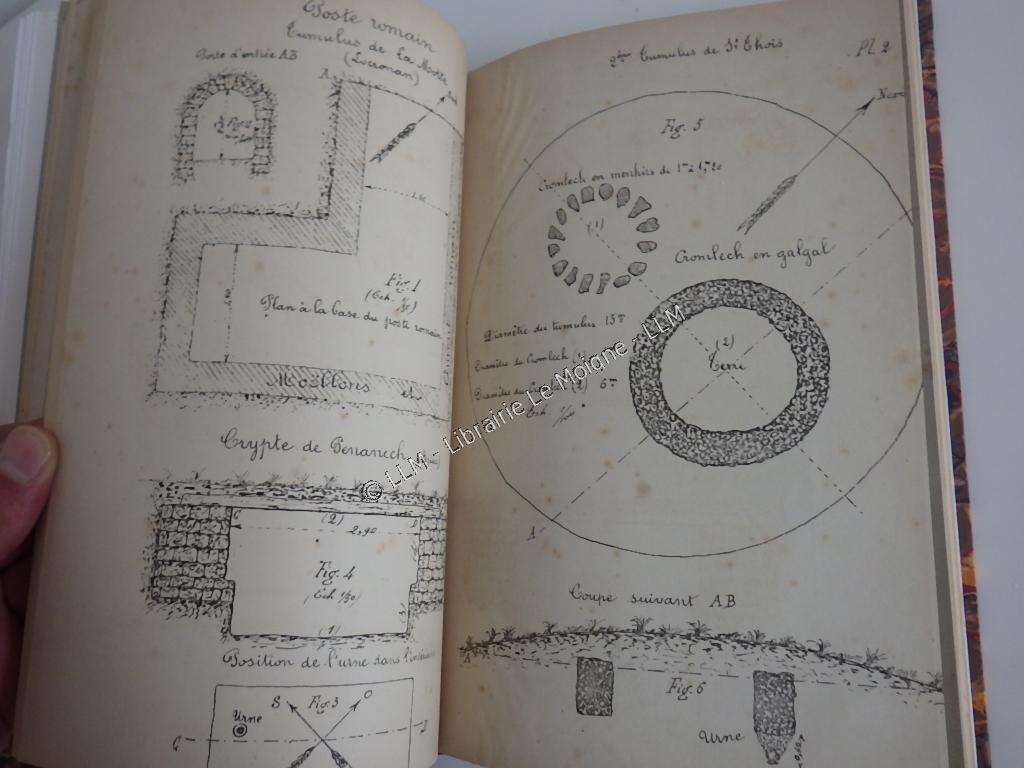 Poste romain
Tumulus de la Motte
(Locronan)
Porte d'entrée AB
A
Fig. 2
Fig. 1
Plan à la base du poste romain
Moellons et
Crypte de
(2)
2,90
Fig. 4
(Ech. 1/50)
(1)
Position de l'urne dans
S Fig. 3 O
Urne
2me Tumulus de St Thois
Pl. 2
Fig. 5
Nord
Cromlech en menhirs de 1m à 1m20
(1)
Cromlech en galgal
Diamètre du tumulus 15m
Diamètre du Cromlech
Diamètre du 6m
Ech.
(2)
Terre
A
Coupe suivant AB
A
Fig. 6
Urne
© LLM - Librairie Le Moigne - LLM